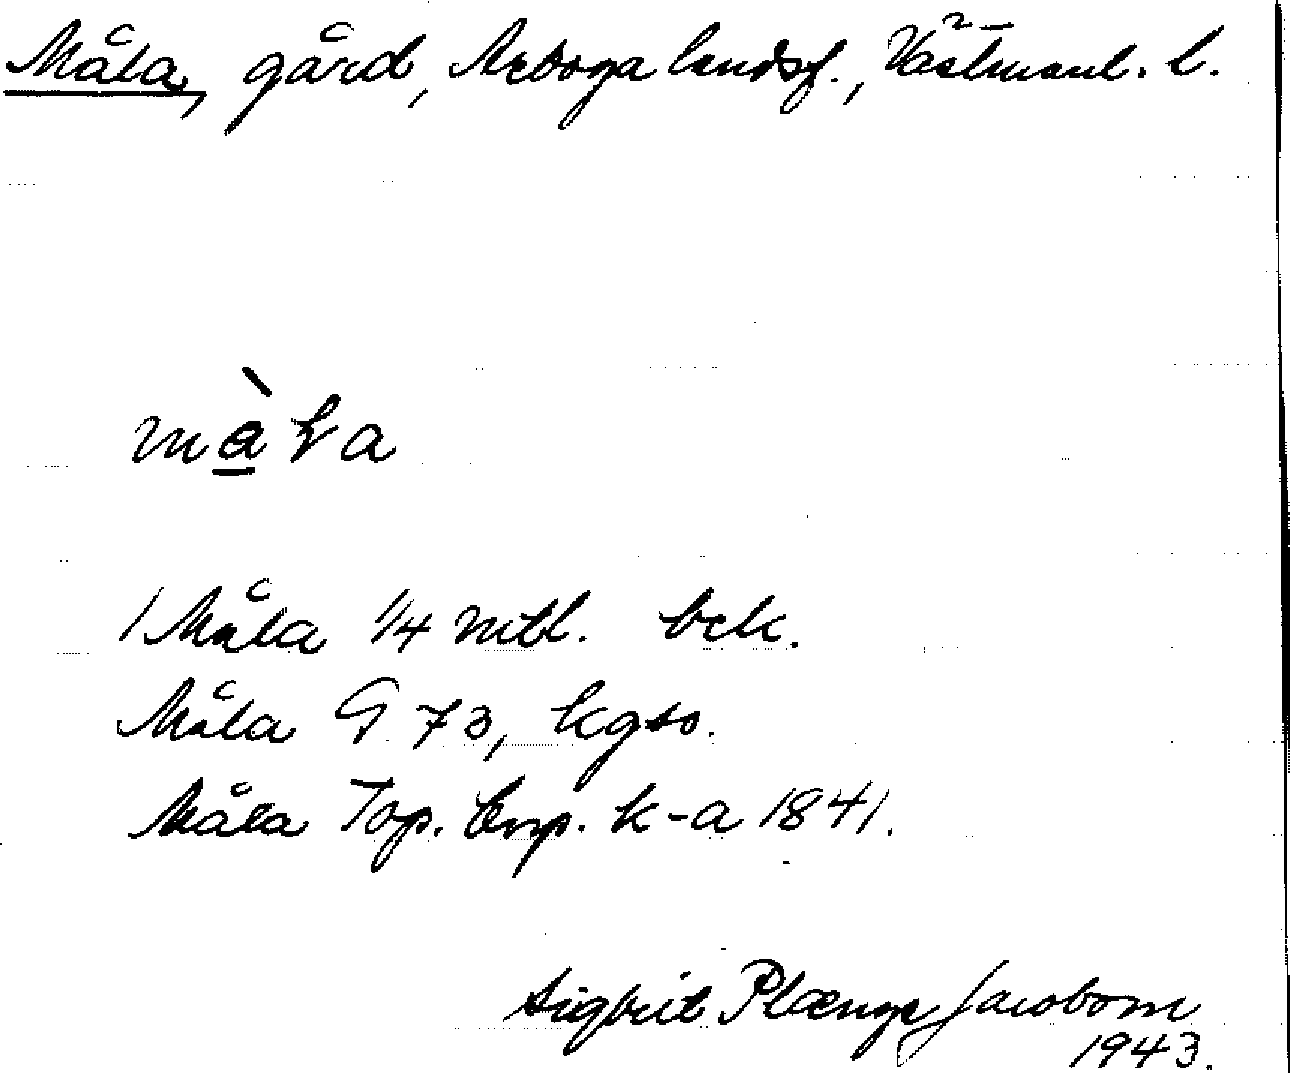 Måla, gård, Arboga landsf., Västmanl. l.
màɫa
1 Måla 1/4 mtl. bck.
Måla G 73, kgso.
Måla Top. Corp. k-a 1841.
Sigfrid Plænge Jacobson
1943.